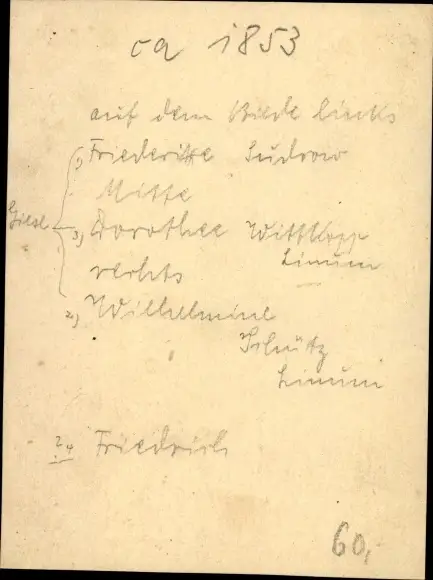 ca 1853
auf dem Bilde links
1) Friederike Sudrow
Mitte
3) Dorothee Wittkopp
Linum
rechts
2) Wilhelmine
Schütz
Linum
24 Friedrich
60,-